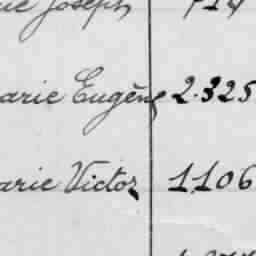 Joseph
arie Eugène 2.325
arie Victor 1.106